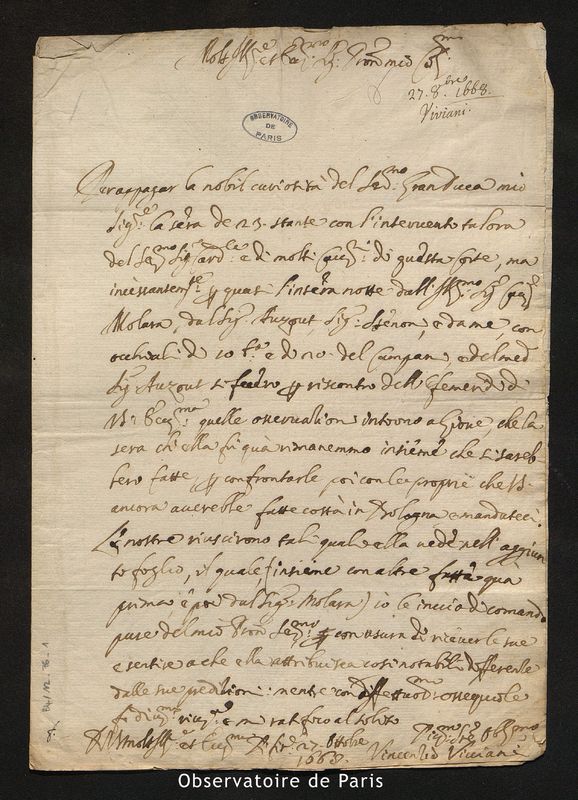 Molt Ill.re et Ecc.mo Sig.r Pron mio Col.mo
27. 8.bre 1668.
Viviani.
OBSERVATOIRE
DE
PARIS
Per appagar la nobil curiosità del Ser.mo Gran Duca mio
Sig.re la sera de 23. stante con l'intervento talora
del Ser.mo Sig. Card.le e di molti Cav.ri di questa Corte, ma
incessantem.te p quasi l'intera notte dall'Ill.mo Sig. Cav.re
Molara, dal Sig. Auzout, Sig. Stenon, e da me, con
occhiali di 10 b.a e di 20. del Campani e del med.
Sig. Auzout si fecero p riscontro dell'Efemeridi di
V.S. Ecc.ma quelle osservationi intorno a Giove, che la
sera ch'ella fu quà rimanemmo insieme che si sareb-
bero fatte p confrontarle poi con le proprie che V.S.
ancora averebbe fatte costà in Bologna e mandateci.
Le nostre riuscirono tali quale ella vedrà nell'aggiun
to foglio, il quale (insieme con altre fatte quà
prima e poi dal Sig. Molara) io le invio di comando
pure del mio Pron Ser.mo p con usura di ricever le sue
e sentire a che ella attribuisca così notabili differenze
dalle sue predizioni: mentre con
mi raffermo al solito
Di V.S. molt'Ill.re et Ecc.ma Fir.e 27. Ottobre
1668. Vincenzio Viviani
Observatoire de Paris